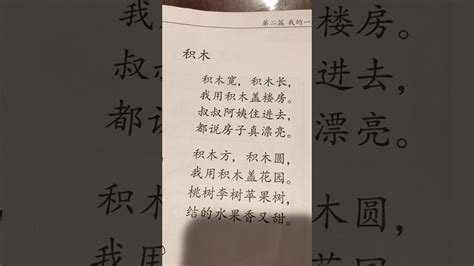 第二篇 我的一
积木
积木宽，积木长，
我用积木盖楼房。
叔叔阿姨住进去，
都说房子真漂亮。
积木方，积木圆，
我用积木盖花园。
桃树李树苹果树，
结的水果香又甜。